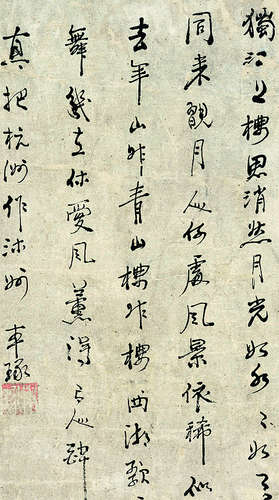 獨江上樓思消然月光如水水如天
同来觀月人何處風景依稀似
去年山外青山樓外樓西湖歌
舞幾休愛風薰得人醉
真把杭州作汴州 車琢